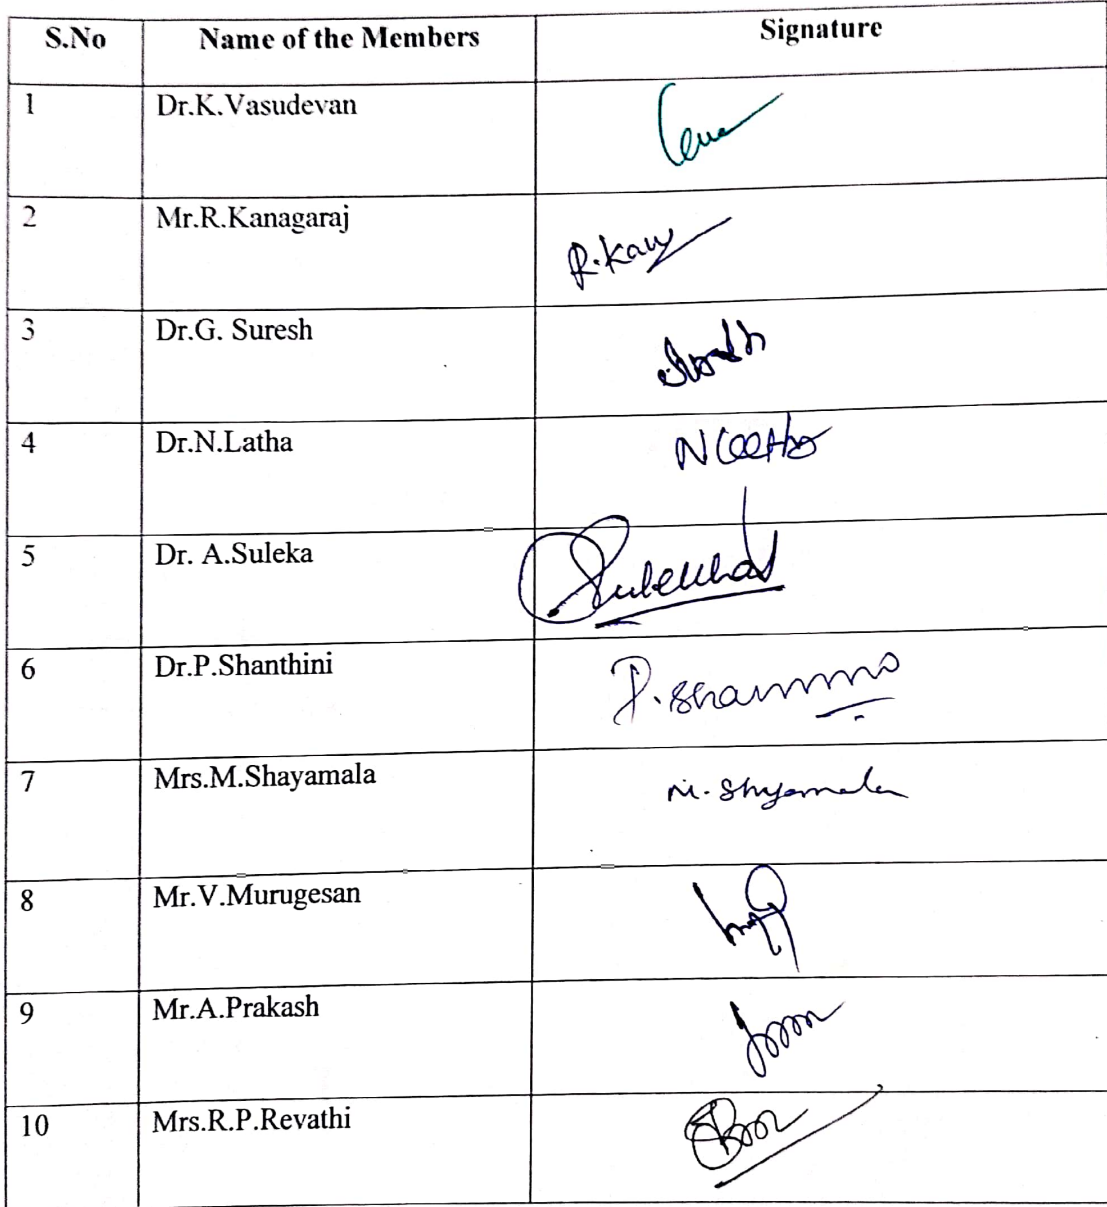 S.No Name of the Members Signature
1 Dr.K.Vasudevan
2 Mr.R.Kanagaraj R.Kan
3 Dr.G. Suresh
4 Dr.N.Latha
5 Dr. A.Suleka Sulekha
6 Dr.P.Shanthini
7 Mrs.M.Shayamala M. Shyamala
8 Mr.V.Murugesan
9 Mr.A.Prakash
10 Mrs.R.P.Revathi